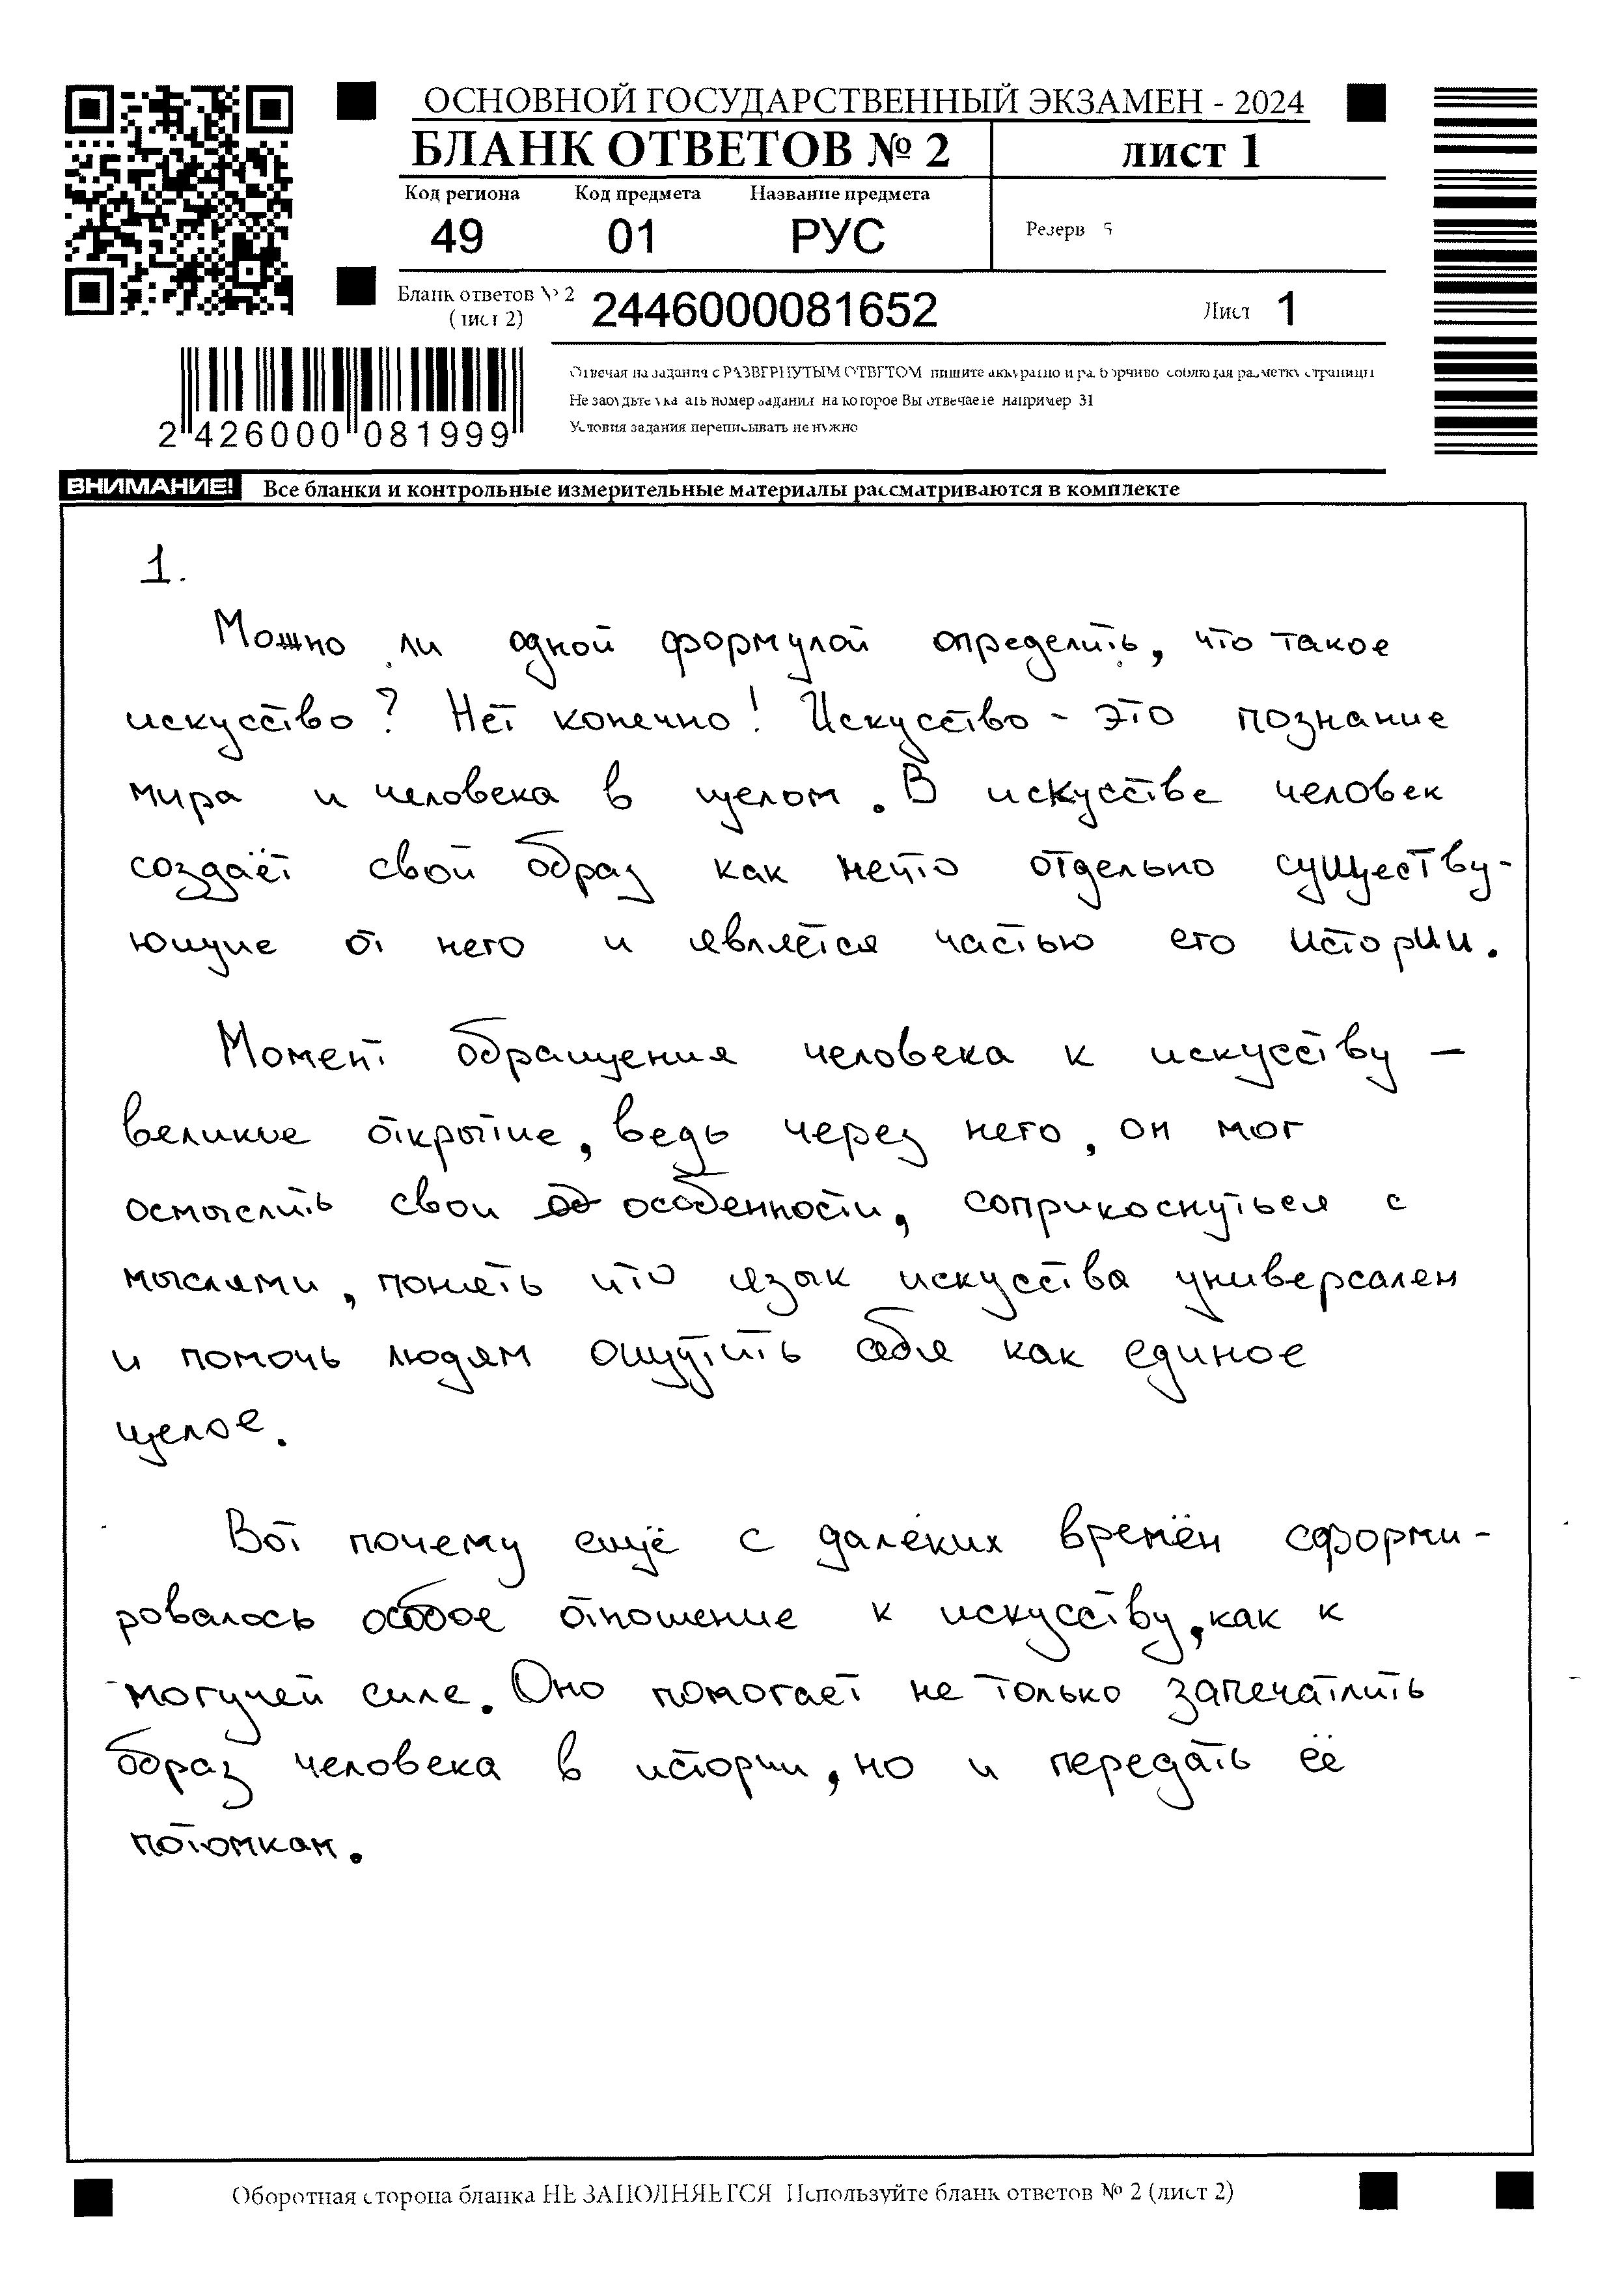 ОСНОВНОЙ ГОСУДАРСТВЕННЫЙ ЭКЗАМЕН - 2024
БЛАНК ОТВЕТОВ № 2
лист 1
Код региона Код предмета Название предмета
49 01 РУС
Резерв 5
Бланк ответов № 2
(лист 2)
2446000081652
Лист 1
2 426000 081999
Отвечая на задания с РАЗВЕРНУТЫМ ОТВЕТОМ пишите аккуратно и разборчиво соблюдая разметку страницы
Не забудьте указать номер задания на которое Вы отвечаете например 31
Условия задания переписывать не нужно
ВНИМАНИЕ! Все бланки и контрольные измерительные материалы рассматриваются в комплекте
1.
Можно ли одной формулой определить, что такое
искусство? Нет конечно! Искусство - это познание
мира и человека в целом. В искусстве человек
создаёт свой образ как нечто отдельно существу-
ющие от него и является частью его истории.
Момент обращения человека к искусству —
великое открытие, ведь через него, он мог
осмыслить свои особенности, соприкоснуться с
мыслями, понять что язык искусства универсален
и помочь людям ощутить себя как единое
целое.
Вот почему ещё с далёких времён сформи-
ровалось особое отношение к искусству, как к
могучей силе. Оно помогает не только запечатлить
образ человека в истории, но и передать её
потомкам.
Оборотная сторона бланка НЕ ЗАПОЛНЯЕТСЯ Используйте бланк ответов № 2 (лист 2)